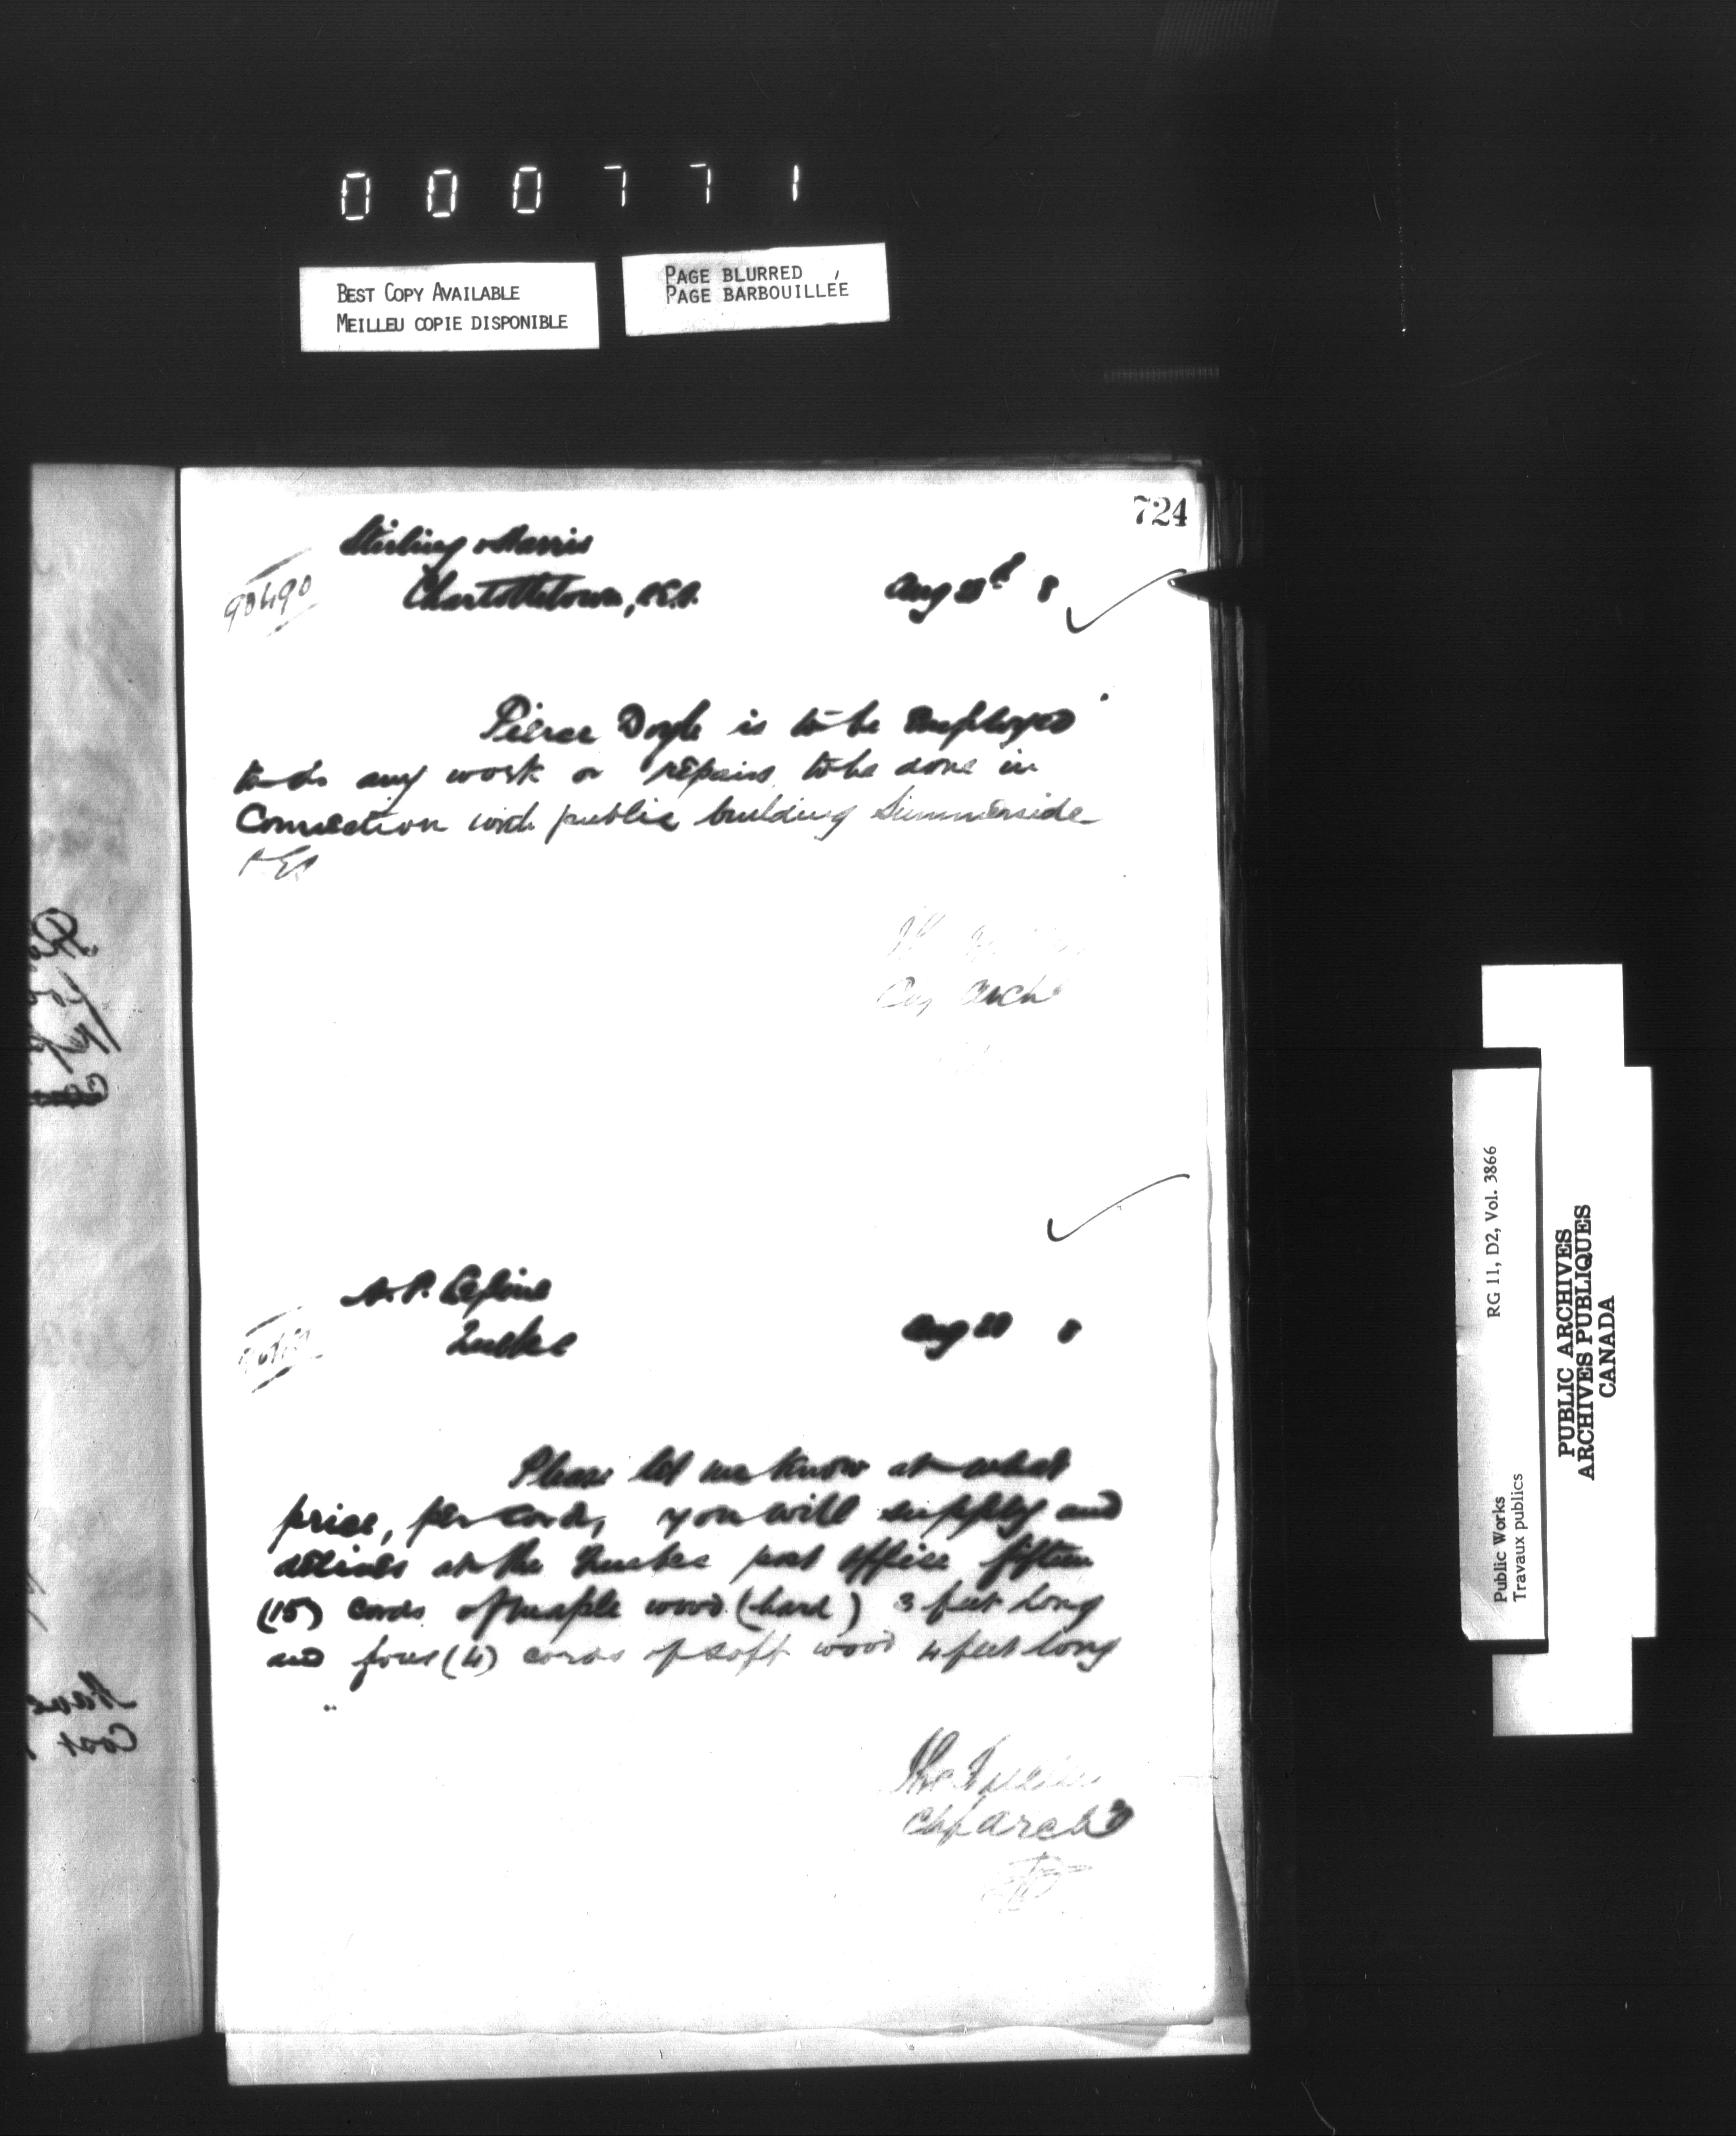 000771
BEST COPY AVAILABLE
MEILLEU COPIE DISPONIBLE
PAGE BLURRED
PAGE BARBOUILLÉE
724
Stirling & Harris
90490
Charlottetown, P.E.I.
Aug 8
Pierce Doyle is to be employed
to do any work or repairs to be done in
Connection with public building Summerside
PEI
arch
A. P. Lepine
Quebec
Aug 20 8
Please let me know at what
price, per cord, you will supply and
deliver at the Quebec post office fifteen
(15) cords of maple wood (hard) 3 feet long
and four (4) cords of soft wood 4 feet long
Thos Fuller
Chf arch
RG 11, D2, Vol. 3866
Public Works
Travaux publics
PUBLIC ARCHIVES
ARCHIVES PUBLIQUES
CANADA